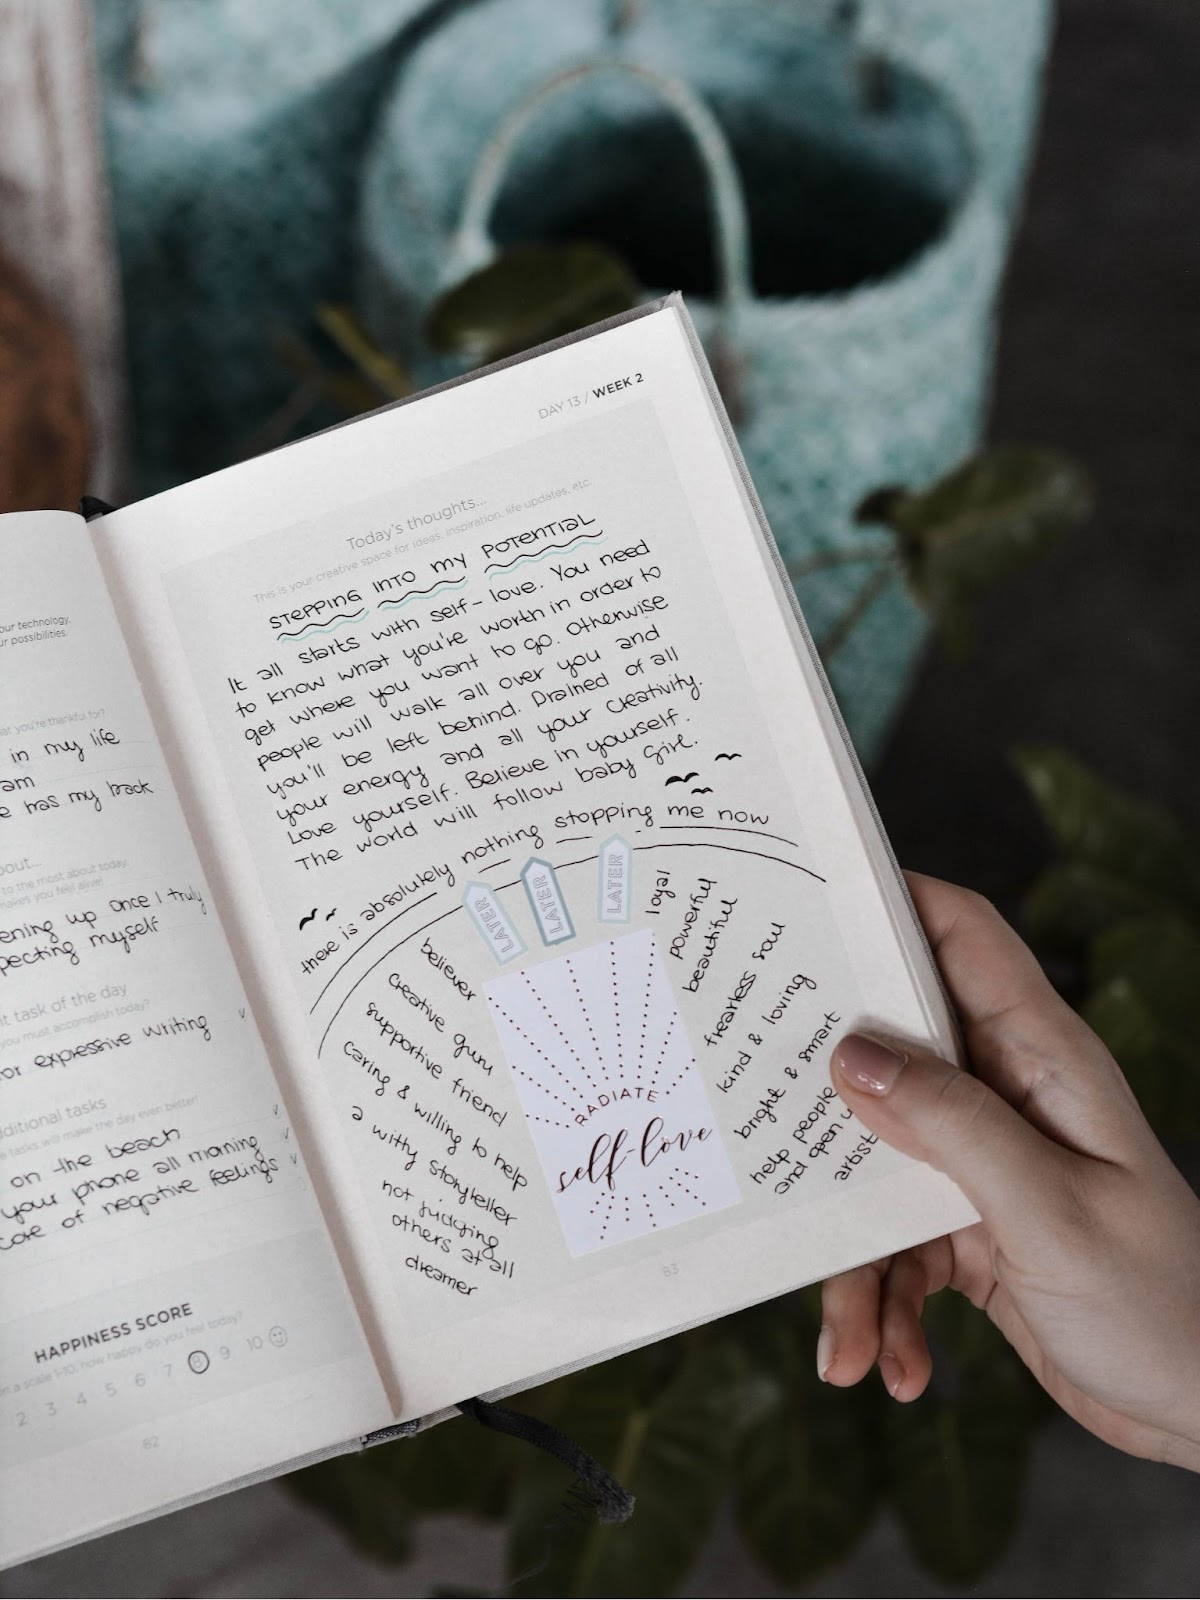 our technology,
ur possibilities.
at you're thankful for?
in my life
am
e has my back
bout...
to the most about today.
makes you feel alive!
ening up once I truly
pecting myself
it task of the day
you must accomplish today?
or expressive writing
dditional tasks
e tasks will make the day even better!
on the beach
your phone all morning
care of negative feelings
HAPPINESS SCORE
on a scale 1-10, how happy do you feel today?
2 3 4 5 6 7 8 9 10
82
DAY 13 / WEEK 2
Today's thoughts...
This is your creative space for ideas, inspiration, life updates, etc.
STEPPING INTO MY POTENTIAL
It all starts with self-love. You need
to know what you're worth in order to
get where you want to go. Otherwise
people will walk all over you and
you'll be left behind. Drained of all
your energy and all your creativity.
Love yourself. Believe in yourself.
The world will follow baby girl.
there is absolutely nothing stopping me now
LATER
LATER
LATER
believer
creative guru
supportive friend
caring & willing to help
a witty storyteller
not judging
others at all
dreamer
RADIATE
self-love
loyal
powerful
beautiful
fearless soul
kind & loving
bright & smart
help people
and open u
artist
83